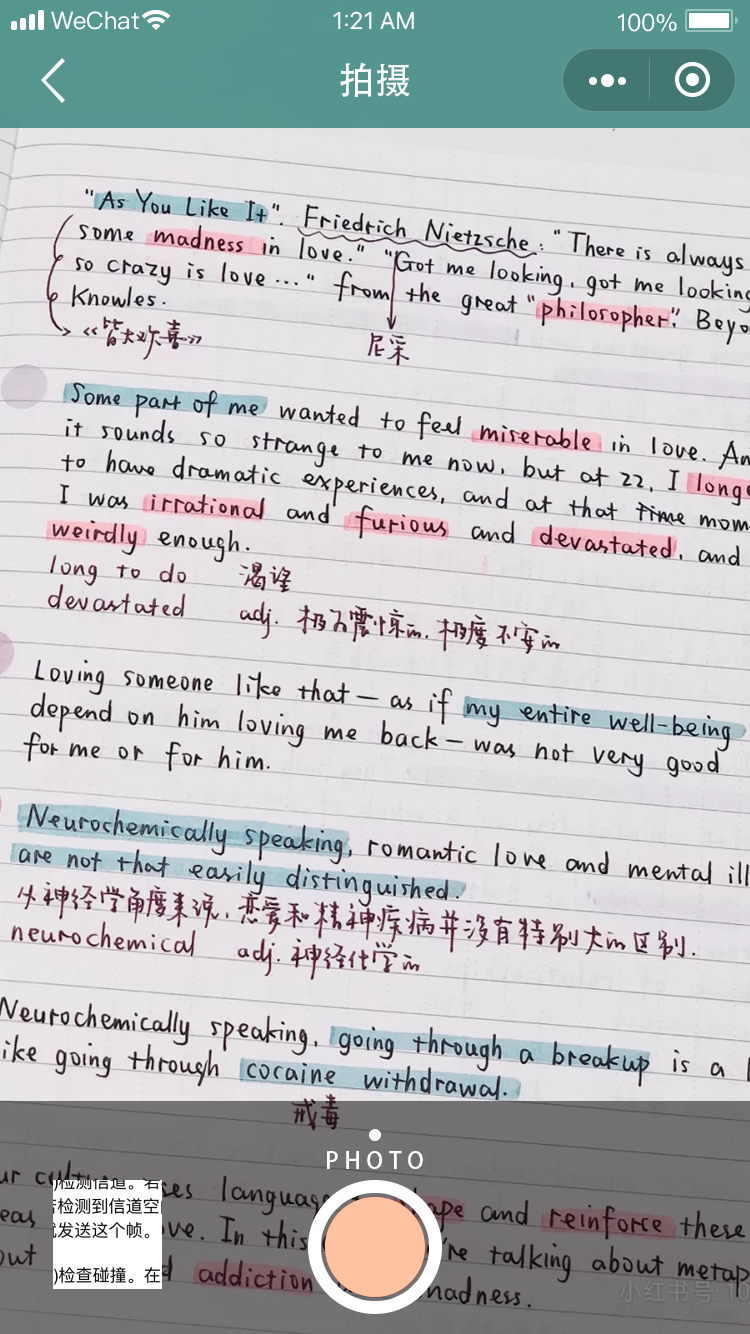 WeChat 1:21 AM 100%
拍摄
"As You Like It". Friedrich Nietzsche: "There is always
some madness in love." "Got me looking, got me looking
so crazy is love..." from the great "philosopher". Beyo
Knowles.
《皆大欢喜》
尼采
Some part of me wanted to feel miserable in love. An
it sounds so strange to me now, but at 22, I longe
to have dramatic experiences, and at that time mom
I was irrational and furious and devastated, and
weirdly enough.
long to do 渴望
devastated adj. 极为震惊的, 极度不安的
Loving someone like that — as if my entire well-being
depend on him loving me back — was not very good
for me or for him.
Neurochemically speaking, romantic love and mental ill
are not that easily distinguished.
从神经学角度来说, 恋爱和精神疾病并没有特别大的区别.
neurochemical adj. 神经化学的
Neurochemically speaking, going through a breakup is a l
ike going through cocaine withdrawal.
戒毒
PHOTO
ur cul ses languag ape and reinforce these
eas ve. In this 're talking about metap
out d addiction madness.
)检测信道。若
检测到信道空
发送这个帧。
)检查碰撞。在
小红书号: 10